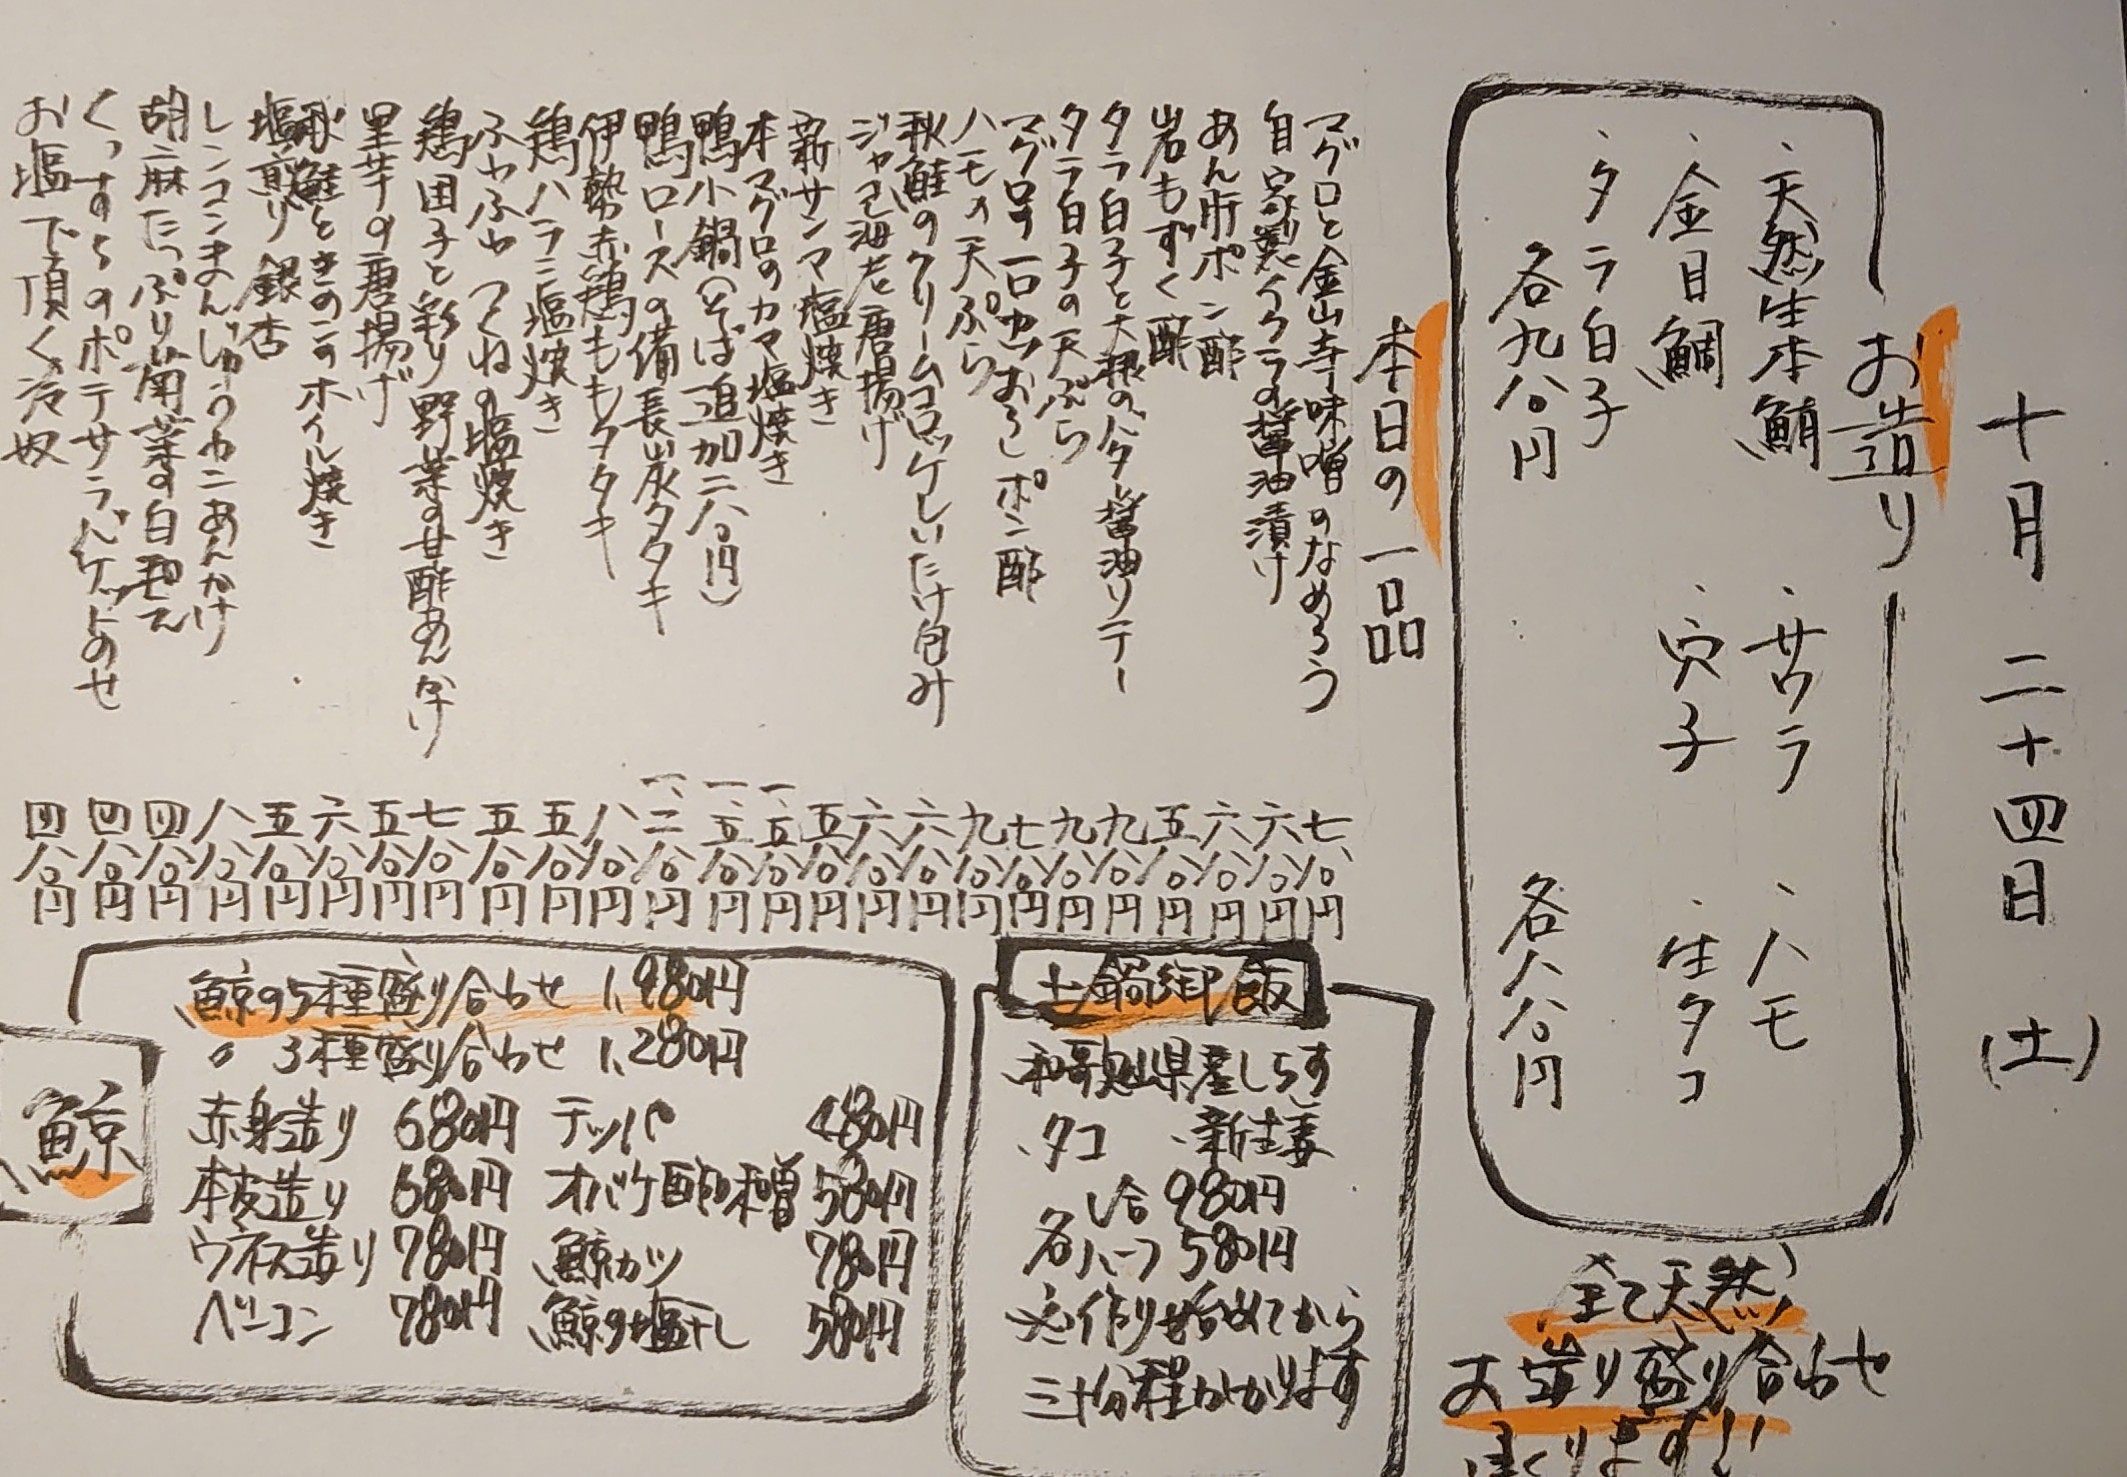 十月二十四日(土)
お造り
・天然生本鮪 ・サワラ ・ハモ
・金目鯛 ・穴子 ・生タコ
・タラ白子
各九八〇円 各八八〇円
全て天然
お造り盛り合わせ
つくります!!
本日の一品
マグロと金山寺味噌のなめろう 七八〇円
自家製イクラの醤油漬け 六八〇円
あん肝ポン酢 六八〇円
岩もずく酢 五八〇円
タラ白子と大根のバター醤油ソテー 九八〇円
タラ白子の天ぷら 九八〇円
マグロの一口カツおろしポン酢 七八〇円
ハモの天ぷら 九八〇円
秋鮭のクリームコロッケしいたけ包み 六八〇円
ジャコ海老唐揚げ 六八〇円
新サンマ塩焼き 五八〇円
本マグロのカマ塩焼き 一、五八〇円
鴨小鍋(そば追加二八〇円) 一、五八〇円
鴨ロースの備長炭タタキ 一、二八〇円
伊勢赤鶏ももタタキ 八八〇円
鶏ハラミ塩焼き 五八〇円
ふわふわつくねの塩焼き 五八〇円
鶏団子と彩り野菜の甘酢あんかけ 七八〇円
里芋の唐揚げ 五八〇円
秋鮭ときのこのホイル焼き 六八〇円
塩煎り銀杏 五八〇円
レンコンまんじゅうカニあんかけ 八八〇円
胡麻たっぷり菊菜の白和え 四八〇円
くんすけのポテサラバケットのせ 四八〇円
お塩で頂く冷奴 四八〇円
土鍋御飯
和歌山県産しらす
・タコ ・新生姜
1合 980円
各ハーフ 580円
※作り始めてから
三十分程かかります
鯨
鯨の5種盛り合わせ 1,980円
〃 3種盛り合わせ 1,280円
赤身造り 680円 テッパ 480円
本皮造り 680円 オバケ酢味噌 580円
ウネス造り 780円 鯨カツ 780円
ベーコン 780円 鯨の塩干し 580円